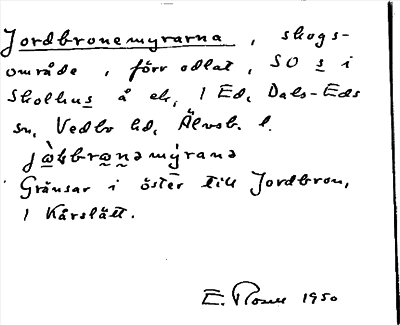 Jordbronemyrarna, skogs-
område, förr odlat, SO s i
Skolhus å ek, 1 Ed, Dals-Eds
sn, Vedbo hd, Älvsb. l.
Gränsar i öster till Jordbron,
1 Kårslätt.
E. Rosell 1950